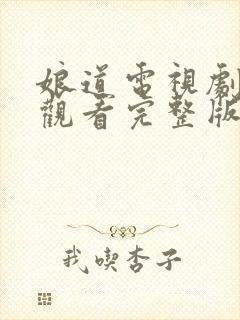 娘道電視劇
觀看完整版
我喫杏子